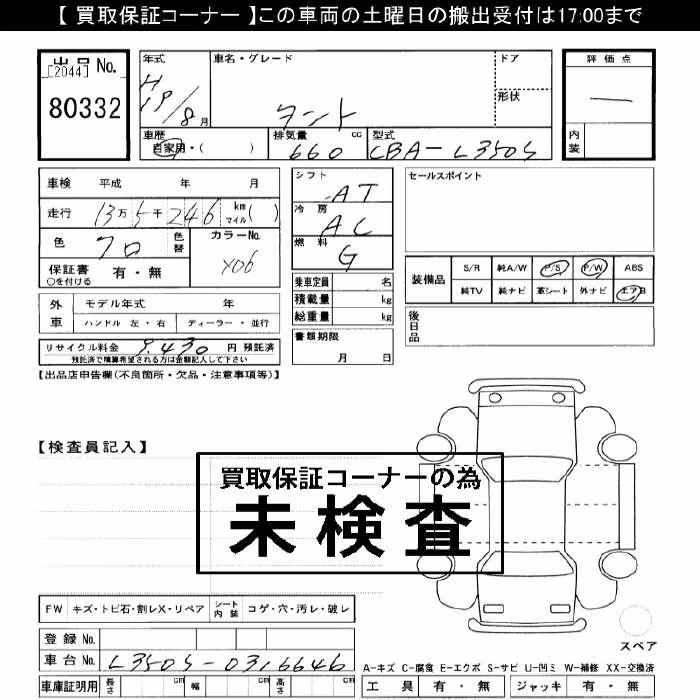 【 買取保証コーナー 】この車両の土曜日の搬出受付は17:00まで
出品 No.
[2044]
80332
年式
H19/8月
車名・グレード
タント
ドア
形状
評価点
—
内装
車歴
自家用・( )
排気量 cc
660
型式
CBA-L350S
車検 平成 年 月
走行 13万5千246 km マイル ( )
色 クロ 色替
カラーNo.
X06
保証書 有・無
○を付ける
シフト AT
冷房 AC
燃料 G
セールスポイント
乗車定員 名
積載量 kg
総重量 kg
書類期限
月 日
装備品 S/R 純A/W P/S P/W ABS
純TV 純ナビ 革シート 外ナビ エアB
後日品
外車 モデル年式 年
ハンドル 左・右 ディーラー・並行
リサイクル料金 9,430 円 預託済
預託済で積算希望される方は金額記入して下さい
【出品店申告欄(不良箇所・欠品・注意事項等)】
【検査員記入】
買取保証コーナーの為
未検査
FW キズ・トビ石・割レX・リペア シート内装 コゲ・穴・汚レ・破レ
スペア
登録 No.
車台 No. L350S-0316646
A-キズ C-腐食 E-エクボ S-サビ U-凹ミ W-補修 XX-交換済
車庫証明用 長さ cm 幅 cm 高さ cm
工具 有・無 ジャッキ 有・無